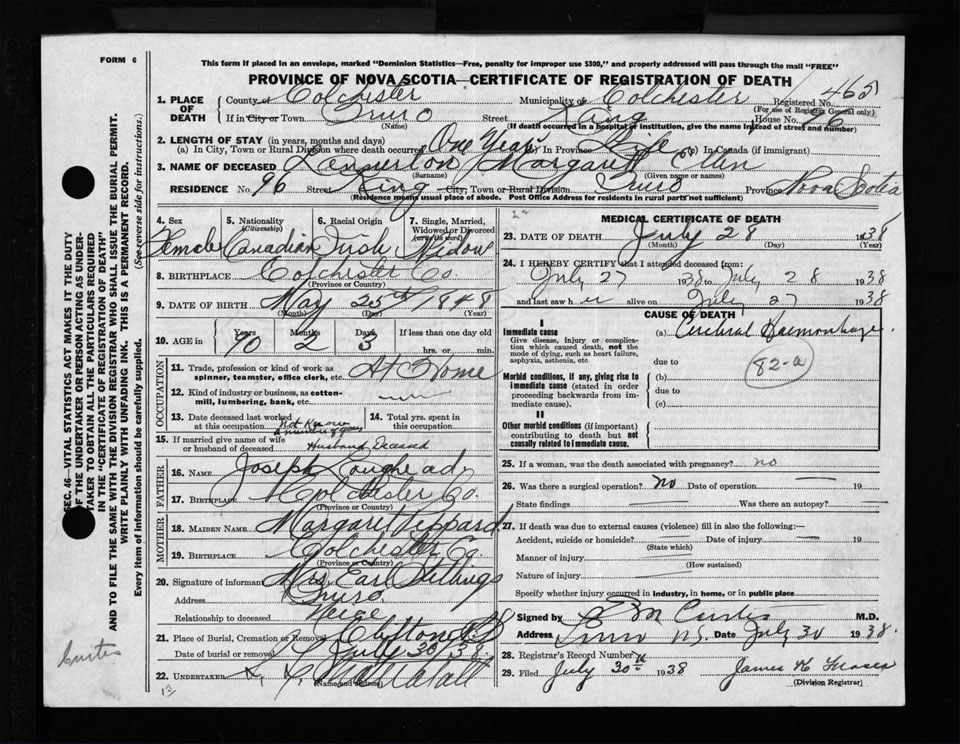 FORM 6
This form if placed in an envelope, marked "Dominion Statistics—Free, penalty for improper use $300," and properly addressed will pass through the mail "FREE"
PROVINCE OF NOVA SCOTIA—CERTIFICATE OF REGISTRATION OF DEATH
Registered No. 465
(For use of Registrar General only)
1. PLACE OF DEATH
County of Colchester Municipality of Colchester
If in City or Town Truro Street King House No. 96
(Name) (If death occurred in a hospital or institution, give the name instead of street and number)
2. LENGTH OF STAY (in years, months and days)
(a) In City, Town or Rural Division where death occurred One Year (b) In Province Life (c) In Canada (if immigrant)
3. NAME OF DECEASED Margaret Ellen
(Surname) (Given name or names)
RESIDENCE No. 96 Street King City, Town or Rural Division Truro Province Nova Scotia
(Residence means usual place of abode. Post Office Address for residents in rural parts not sufficient)
4. Sex Female
5. Nationality (Citizenship) Canadian
6. Racial Origin Irish
7. Single, Married, Widowed or Divorced (write the word) Widow
8. BIRTHPLACE Colchester Co.
(Province or Country)
9. DATE OF BIRTH May 25th 1848
(Month) (Day) (Year)
10. AGE in Years 90 Months 2 Days 3 If less than one day old
hrs. or min.
OCCUPATION
11. Trade, profession or kind of work as spinner, teamster, office clerk, etc. At Home
12. Kind of industry or business, as cotton-mill, lumbering, bank, etc.
13. Date deceased last worked at this occupation Not Known a number of years
14. Total yrs. spent in this occupation.
15. If married give name of wife or husband of deceased Husband Deceased
FATHER
16. NAME Joseph Loughead
17. BIRTHPLACE Colchester Co.
(Province or Country)
MOTHER
18. MAIDEN NAME Margaret Peppard
19. BIRTHPLACE Colchester Co.
(Province or Country)
20. Signature of informant Mrs Earl
Address Truro
Relationship to deceased Niece
21. Place of Burial, Cremation or Removal Clifton
Date of burial or removal July 30/38
22. UNDERTAKER
(Name and address)
13
Curtis
MEDICAL CERTIFICATE OF DEATH
23. DATE OF DEATH July 28 1938
(Month) (Day) (Year)
24. I HEREBY CERTIFY that I attended deceased from:
July 27 1938 to July 28 1938
and last saw her alive on July 27 1938
CAUSE OF DEATH
I
Immediate cause (a) Cerebral Haemorrhage
Give disease, injury or complication which caused death, not the mode of dying, such as heart failure, asphyxia, asthenia, etc.
due to
82-a
Morbid conditions, if any, giving rise to immediate cause (stated in order proceeding backwards from immediate cause).
(b)
due to
(c)
II
Other morbid conditions (if important) contributing to death but not causally related to immediate cause.
25. If a woman, was the death associated with pregnancy? no
26. Was there a surgical operation? no Date of operation — 19
State findings Was there an autopsy? —
27. If death was due to external causes (violence) fill in also the following:—
Accident, suicide or homicide? Date of injury — 19
(State which)
Manner of injury
(How sustained)
Nature of injury
Specify whether injury occurred in industry, in home, or in public place
Signed by Curtis M.D.
Address Truro N.S. Date July 30 1938.
28. Registrar's Record Number
29. Filed July 30th 1938 James K Fraser
(Division Registrar)
SEC. 46—VITAL STATISTICS ACT MAKES IT THE DUTY
OF THE UNDERTAKER OR PERSON ACTING AS UNDERTAKER TO OBTAIN ALL THE PARTICULARS REQUIRED
IN THE "CERTIFICATE OF REGISTRATION OF DEATH"
AND TO FILE THE SAME WITH THE DIVISION REGISTRAR WHO SHALL ISSUE THE BURIAL PERMIT.
WRITE PLAINLY WITH UNFADING INK. THIS IS A PERMANENT RECORD.
Every item of information should be carefully supplied. (See reverse side for instructions.)